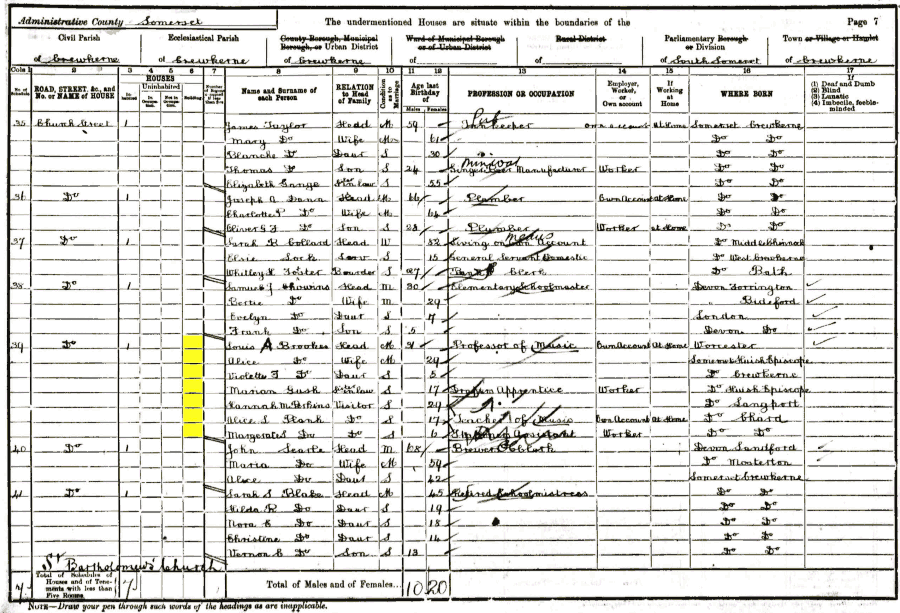 Administrative County Somerset The undermentioned Houses are situate within the boundaries of the Page 7
Civil Parish Ecclesiastical Parish County Borough, Municipal Borough, or Urban District Ward of Municipal Borough or of Urban District Rural District Parliamentary Borough or Division Town or Village or Hamlet
of Crewkerne of Crewkerne of Crewkerne of of of South Somerset of Crewkerne
Cols 1 2 3 4 5 6 7 8 9 10 11 12 13 14 15 16 17
ROAD, STREET, &c., and No. or NAME of HOUSE HOUSES Inhabited Uninhabited In Occupation Not in Occupation Building Name and Surname of each Person RELATION to Head of Family Condition as to Marriage Age last Birthday of Males Females PROFESSION OR OCCUPATION Employer, Worker, or Own account If Working at Home WHERE BORN If (1) Deaf and Dumb (2) Blind (3) Lunatic (4) Imbecile, feeble-minded
35 Church Street 1 James Taylor Head M 59 Innkeeper Pub own account at Home Somerset Crewkerne
Mary Do Wife M 61 Do Do
Blanche Do Daur S 30 Do Do
Thomas Do Son S 24 Ginger Beer Manufacturer Mineral Worker Do Do
Elizabeth S 55 Do Do
36 Do 1 Joseph Head M 66 Plumber Own Account at Home Do Do
Charlotte Do Wife M 64 Do Do
Oliver Do Son S 28 Plumber Worker at Home Do Do
37 Do 1 Sarah Collard Head W 52 Living on Own Account Means Do
Elsie Lock Serv S 15 General Servant Domestic Do West Crewkerne
Foster Boarder S 27 Bank Clerk Do Bath
38 Do 1 Samuel J Head M 30 Elementary Schoolmaster Devon Torrington
Bertie Do Wife M 29 " Bideford
Evelyn Do Daur S 7 London
Frank Do Son S 5 Devon Do
39 Do 1 Louis A Brookes Head M 31 Professor of Music Own Account At Home Worcester
Alice Do Wife M 29 Somerset Huish Episcopi
Violette Do Daur S 5 Do Crewkerne
Marian Gush S 17 Apprentice Worker Do Huish Episcopi
Hannah M Perkins Visitor S 29 Do Langport
Alice Do S 17 Teacher of Music Own Account at Home Do Chard
Do Do S 6 Assistant Worker Do Do
40 Do 1 John Searle Head M 68 Brewer's Clerk Devon Sandford
Maria Do Wife M 59 Do Mosterton
Alice Do Daur S 42 Somerset Crewkerne
41 Do 1 Sarah S Blake Head M 45 Retired Schoolmistress Do Do
Hilda R Do Daur S 19 Do Do
Nora Do Daur S 18 Do Do
Christine Do Daur S 14 Do Do
Vernon Do Son S 13 Do Do
St Bartholomew's Church
7 Total of Schedules of Houses and of Tenements with less than Five Rooms 7 Total of Males and of Females... 10 20
NOTE—Draw your pen through such words of the headings as are inapplicable.